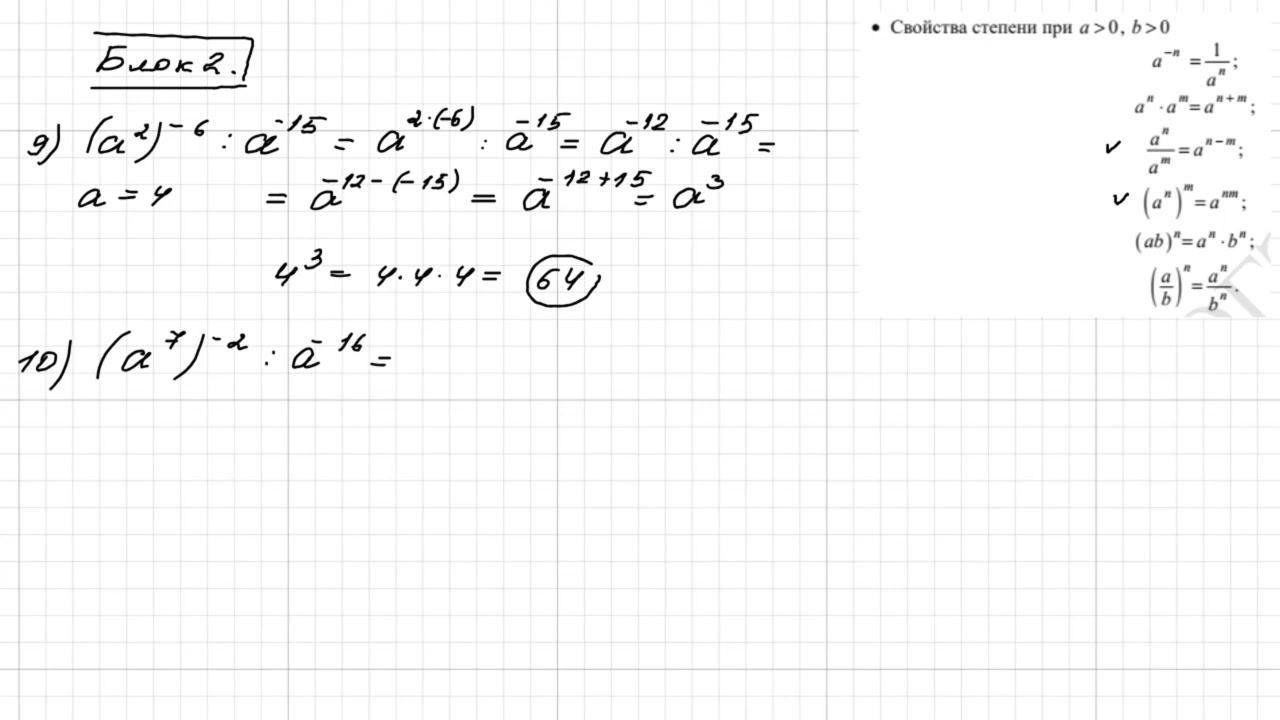 Блок 2.
9) (a²)⁻⁶ : a⁻¹⁵ = a²·⁽⁻⁶⁾ : a⁻¹⁵ = a⁻¹² : a⁻¹⁵ =
a = 4 = a⁻¹²⁻⁽⁻¹⁵⁾ = a⁻¹²⁺¹⁵ = a³
4³ = 4·4·4 = 64;
10) (a⁷)⁻² : a⁻¹⁶ =
• Свойства степени при a > 0, b > 0
a⁻ⁿ = 1/aⁿ;
aⁿ · aᵐ = aⁿ⁺ᵐ;
✓ aⁿ/aᵐ = aⁿ⁻ᵐ;
✓ (aⁿ)ᵐ = aⁿᵐ;
(ab)ⁿ = aⁿ · bⁿ;
(a/b)ⁿ = aⁿ/bⁿ.